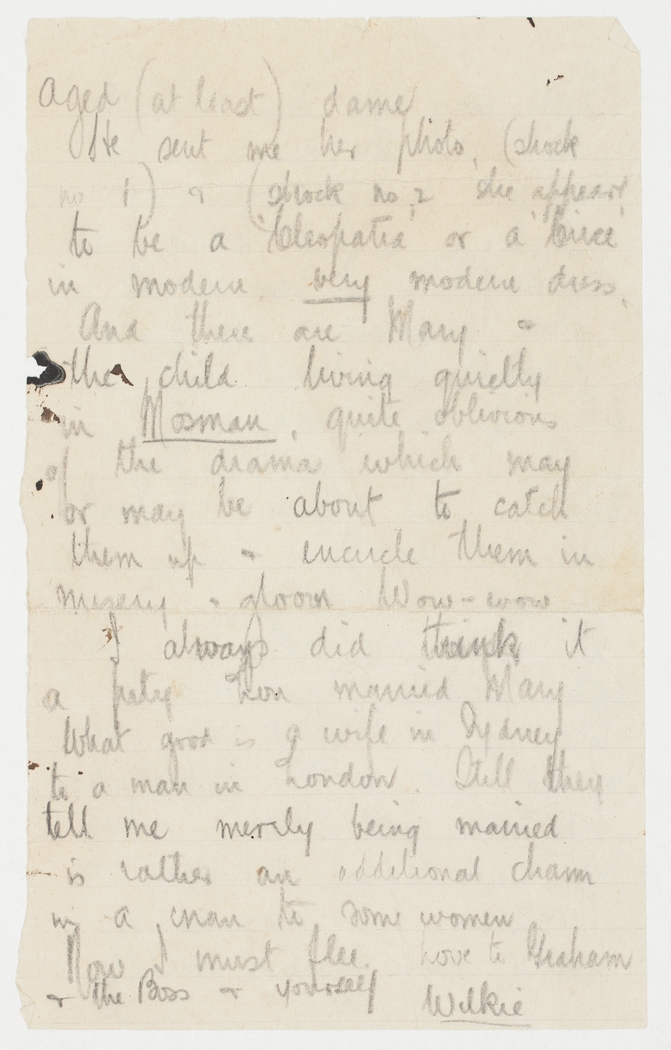 aged (at least) dame.
He sent me her photo, (shock
no 1) & (shock no 2 she appears
to be a "Cleopatra" or a "Circe"
in modern very modern dress.
And there are Mary &
the child living quietly
in Mosman, quite oblivious
of the drama which may
or may be about to catch
them up & encircle them in
misery & gloom Wow-wow
I always did think it
a pity married Mary
What good is a wife in Sydney
to a man in London. Still they
tell me merely being married
is rather an additional charm
in a man to some women
Now I must flee. Love to Graham
& the Boss & yourself Wilkie